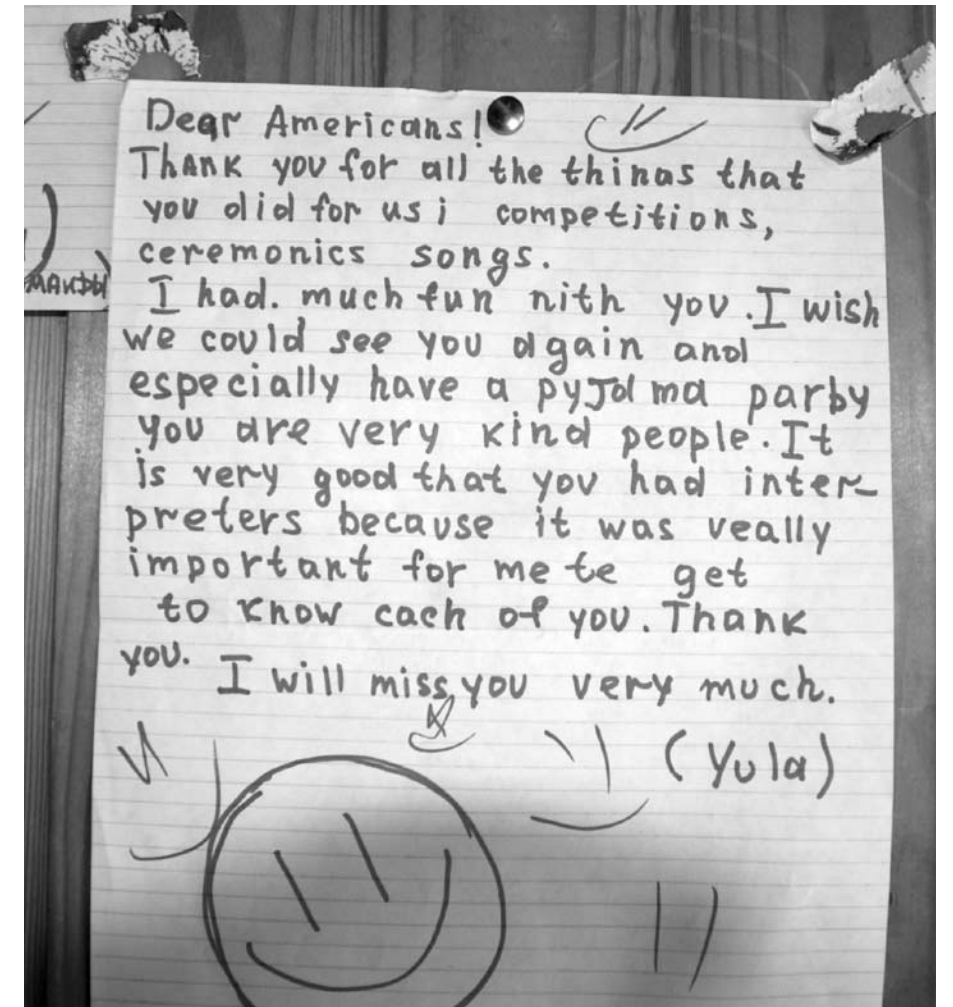 Dear Americans!
Thank you for all the thinas that
you did for us i competitions,
ceremonics songs.
I had. much fun nith you. I wish
we could see you again and
especially have a pyJama parby
you are very kind people. It
is very good that you had inter-
preters because it was veally
important for me te get
to know cach of you. Thank
you.
I will miss you very much.
(Yula)